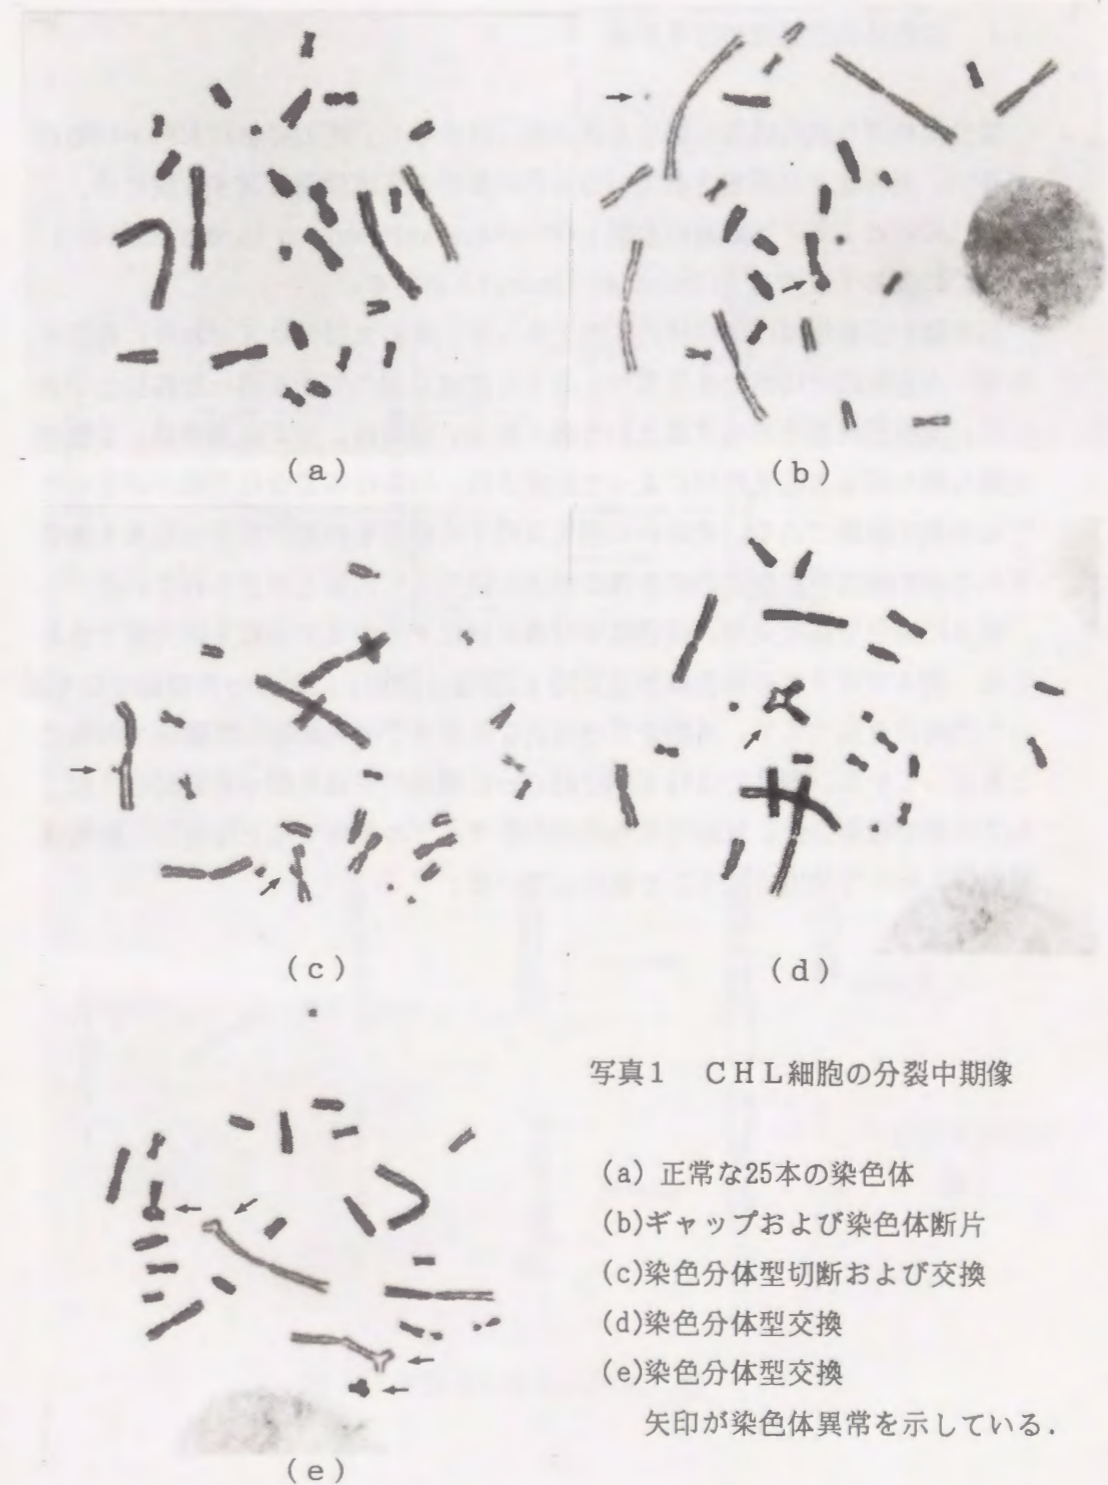 (a)
(b)
(c)
(d)
(e)
写真1 CHL細胞の分裂中期像
(a) 正常な25本の染色体
(b)ギャップおよび染色体断片
(c)染色分体型切断および交換
(d)染色分体型交換
(e)染色分体型交換
矢印が染色体異常を示している.